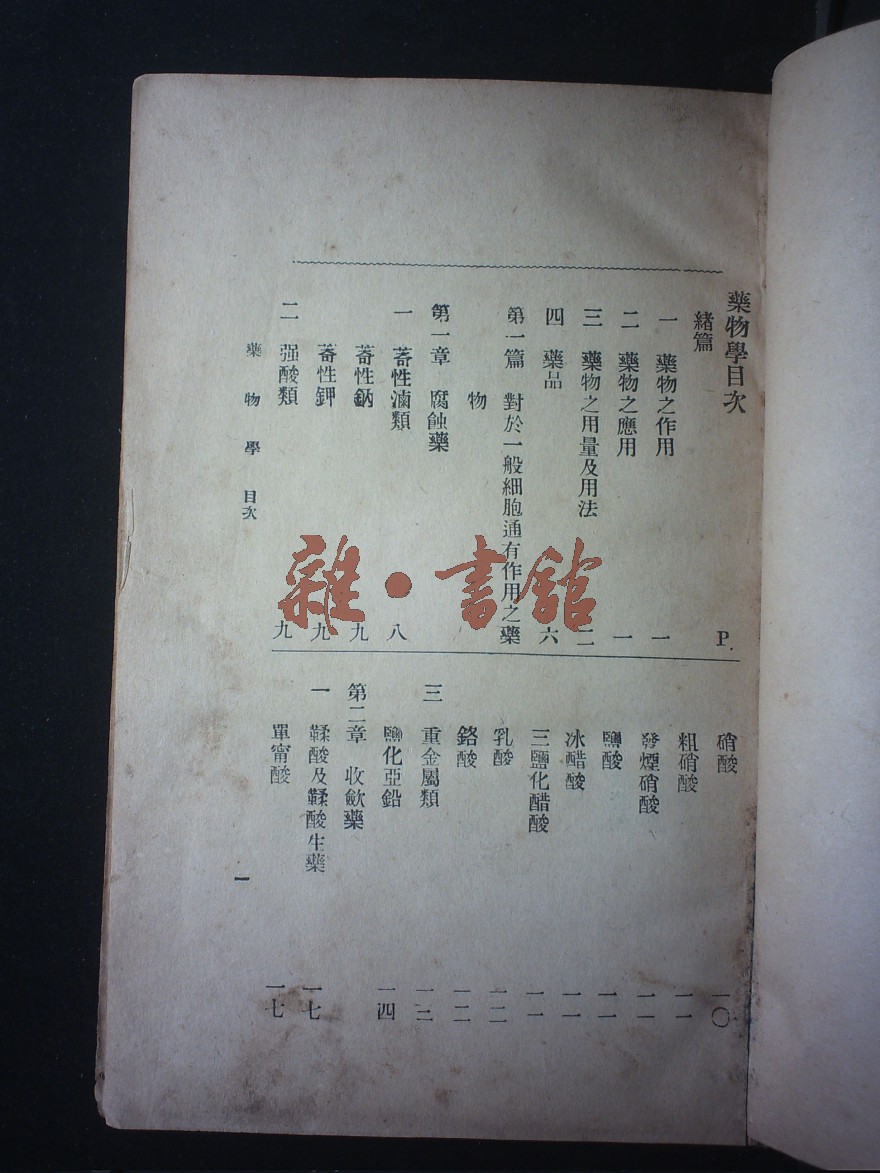 藥物學目次
P.
緒篇
一 藥物之作用 一
二 藥物之應用 一
三 藥物之用量及用法 二
四 藥品 六
第一篇 對於一般細胞通有作用之藥
物
第一章 腐蝕藥
一 蓄性滷類 八
蓄性鈉 九
蓄性鉀 九
二 强酸類 九
硝酸 一〇
粗硝酸 一一
發煙硝酸 一一
鹽酸 一一
冰醋酸 一一
三鹽化醋酸 一一
乳酸 一二
鉻酸 一二
三 重金屬類 一三
鹽化亞鉛 一四
第二章 收斂藥
一 鞣酸及鞣酸生藥 一七
單寗酸 一七
藥物學 目次
一
雜·書館